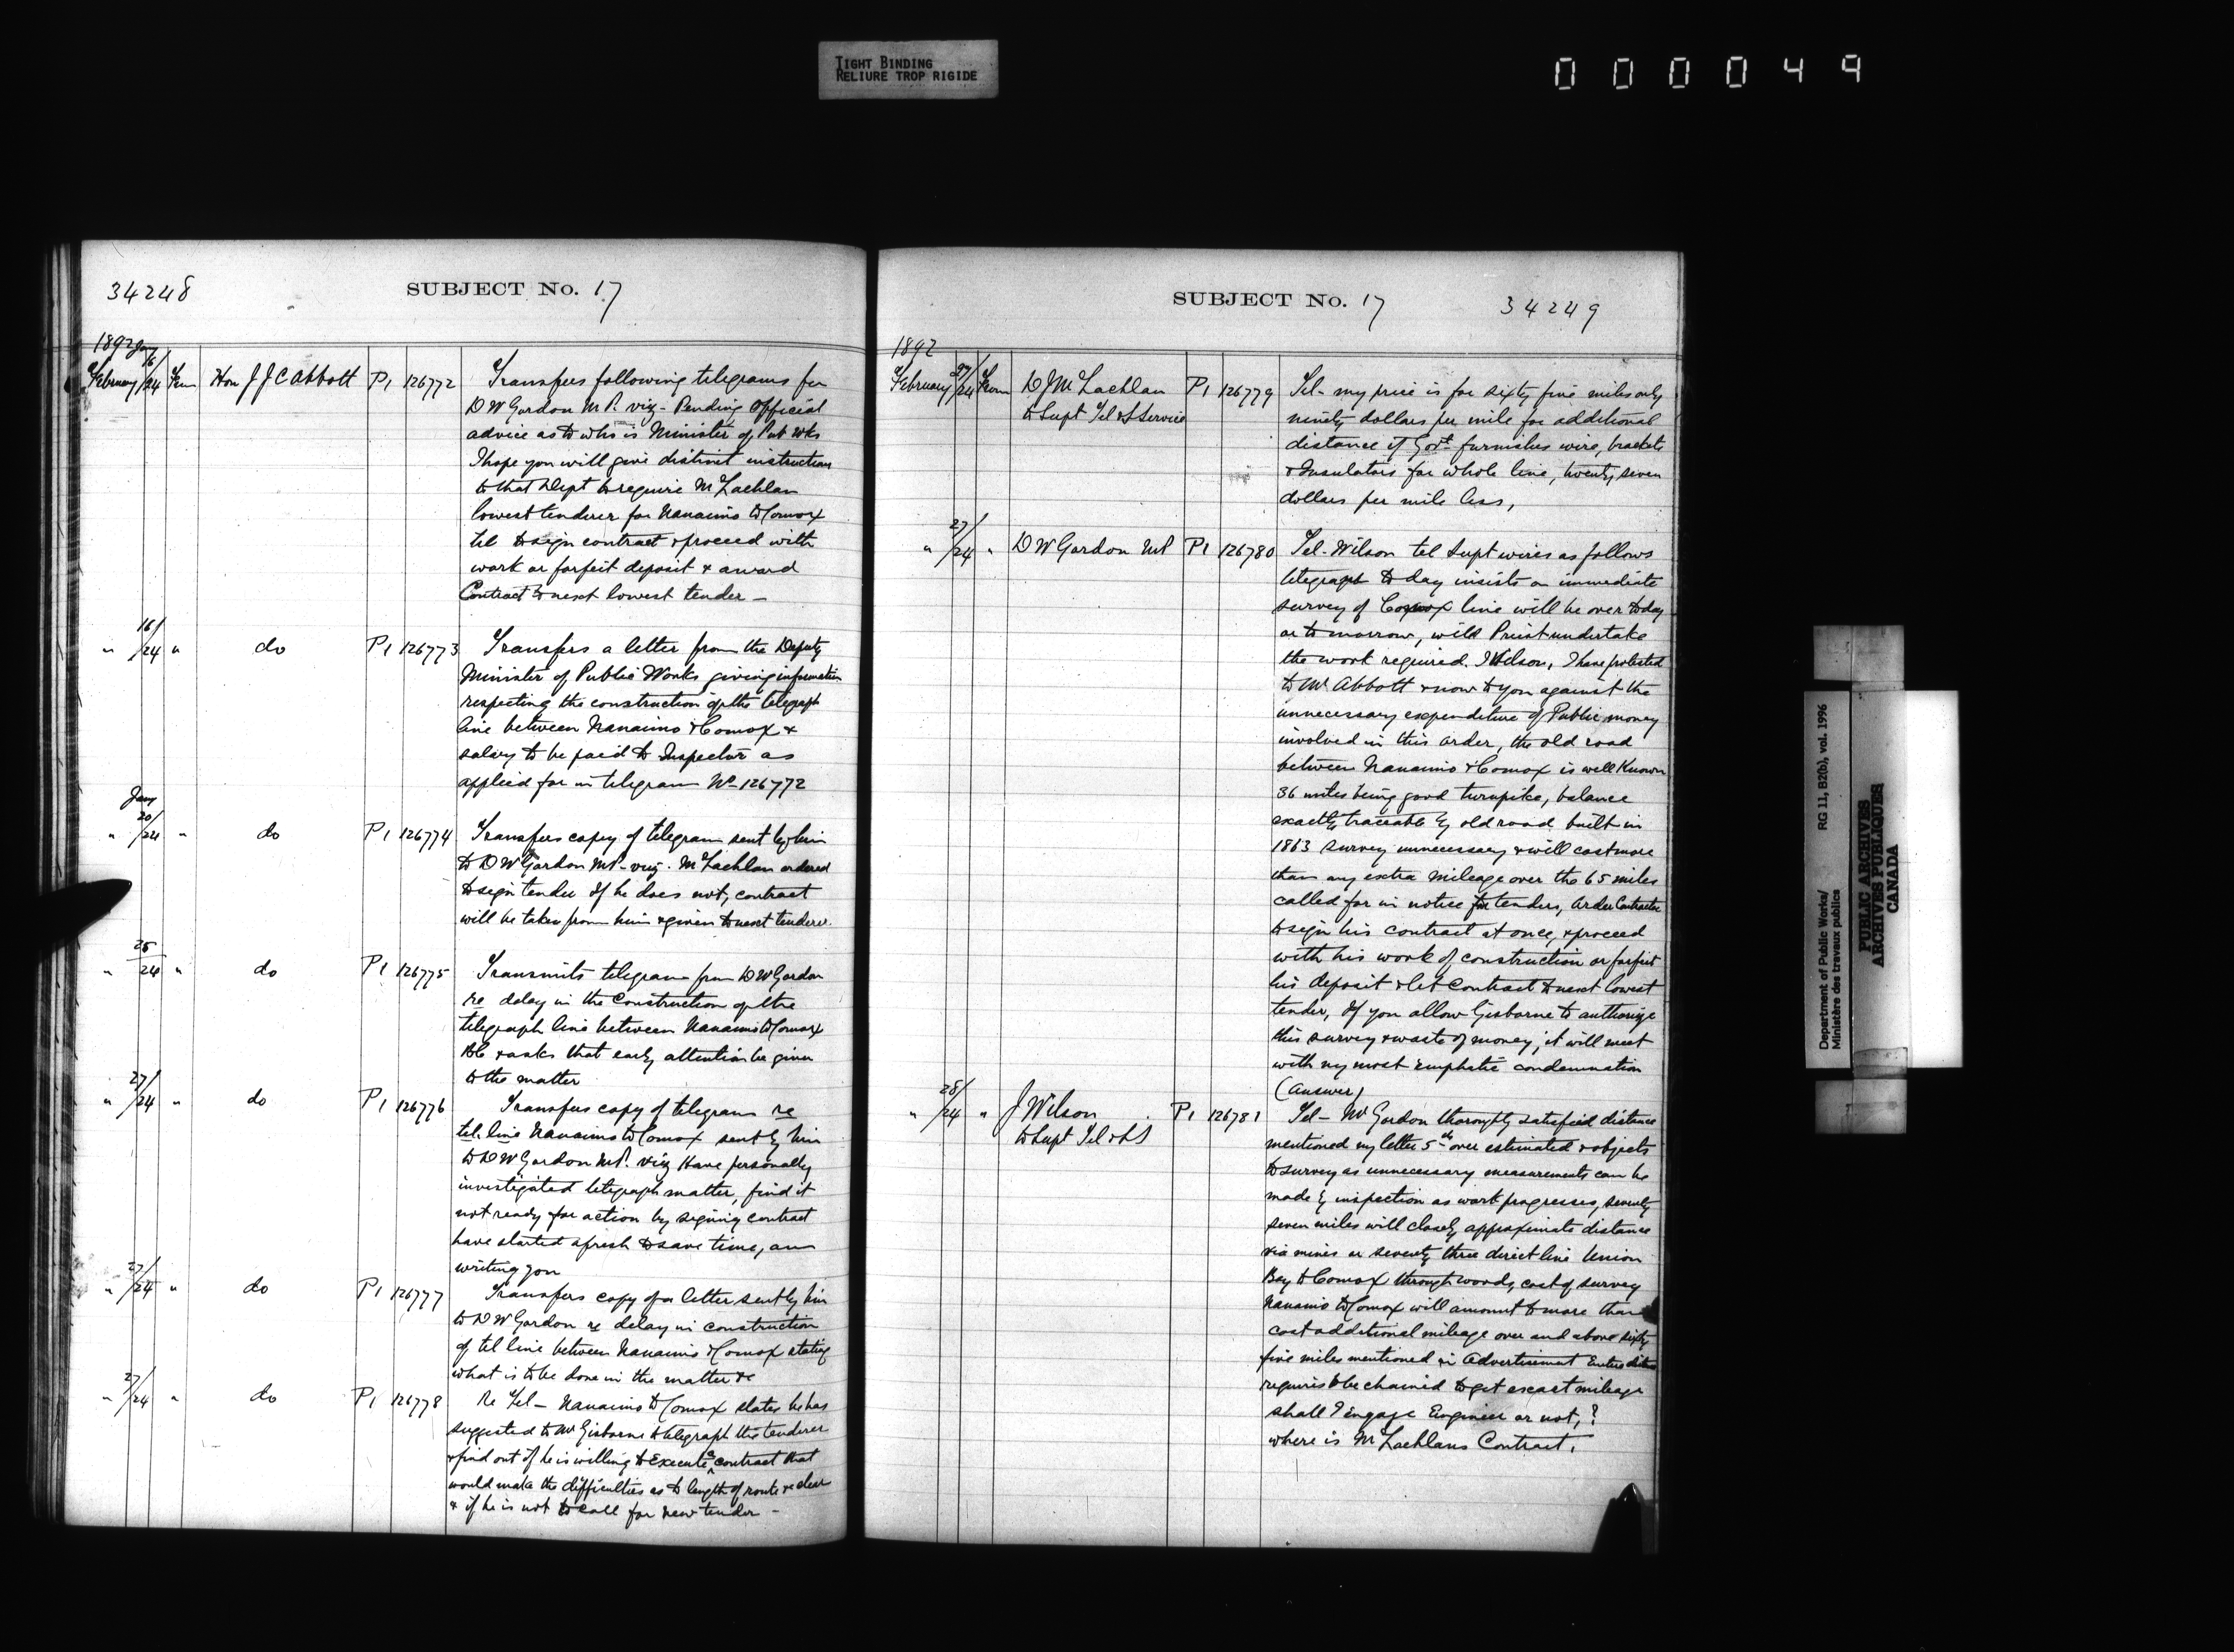 TIGHT BINDING
RELIURE TROP RIGIDE
000049
34248
SUBJECT No. 17
1892 Jany
February 16/24 From Hon J J C Abbott P1 126772 Transfers following telegrams from
D W Gordon M.P. viz - Pending Official
advice as to who is Minister of Pub Wks
I hope you will give distinct instructions
to that Dept to require McLachlan
lowest tenderer for Nanaimo to Comox
tel to sign contract & proceed with
work or forfeit deposit & award
Contract to next lowest tender -
" 16/24 " do P1 126773 Transfers a letter from the Deputy
Minister of Public Works giving information
respecting the construction of the telegraph
line between Nanaimo & Comox &
salary to be paid to Inspector as
applied for in telegram No 126772
Jany
" 20/24 " do P1 126774 Transfers copy of telegram sent by him
to D W Gordon MP. viz. McLachlan ordered
to sign tender If he does not, contract
will be taken from him & given to next tenderer.
" 25/24 " do P1 126775 Transmits telegram from D W Gordon
re delay in the Construction of the
telegraph line between Nanaimo to Comox
BC & asks that early attention be given
to the matter
" 27/24 " do P1 126776 Transfers copy of telegram re
tel. line Nanaimo to Comox sent by him
to D W Gordon M.P. viz Have personally
investigated telegraph matter, find it
not ready for action by signing contract
have started afresh to save time, am
writing you
" 27/24 " do P1 126777 Transfers copy of a letter sent by him
to D W Gordon re delay in construction
of tel line between Nanaimo & Comox stating
what is to be done in the matter &c
" 27/24 " do P1 126778 Re Tel - Nanaimo to Comox states he has
suggested to Mr Gisborne to telegraph the tenderer
& find out if he is willing to execute a contract that
would make the difficulties as to length of route &c clear
& if he is not to call for new tender -
SUBJECT No. 17
34249
1892
February 27/24 From D J McLachlan P1 126779 Tel - my price is for sixty five miles only
to Supt Tel & S Service ninety dollars per mile for additional
distance if Govt. furnishes wire, brackets
& Insulators for whole line, twenty seven
dollars per mile less,
" 27/24 " D W Gordon MP P1 126780 Tel - Wilson tel Supt wires as follows
telegraph to day insists on immediate
survey of Comox line will be over to day
or to morrow, will Priest undertake
the work required. J Wilson, I have protested
to Mr Abbott & now to you against the
unnecessary expenditure of Public money
involved in this order, the old road
between Nanaimo & Comox is well known
36 miles being good turnpike, balance
exactly traceable by old road built in
1863 survey unnecessary & will cost more
than any extra mileage over the 65 miles
called for in notice for tenders, Order Contractor
to sign his contract at once, & proceed
with his work of construction or forfeit
his deposit & let Contract to next lowest
tender, If you allow Gisborne to authorize
this survey & waste of money, it will meet
with my most emphatic condemnation
(Answer)
" 28/24 " J Wilson P1 126781 Tel - Mr Gordon thoroughly satisfied distance
to Supt Tel & SS mentioned my letter 5th over estimated & objects
to survey as unnecessary measurements can be
made by inspection as work progresses, seventy
seven miles will closely approximate distance
via mines or seventy three direct line Union
Bay to Comox through woods, cost of survey
Nanaimo to Comox will amount to more than
cost additional mileage over and above sixty
five miles mentioned in Advertisement Entire distance
requires to be chained to get exact mileage
shall I engage Engineer or not,?
where is McLachlans Contract.
Department of Public Works/
Ministère des travaux publics
RG 11, B2(b), vol. 1996
PUBLIC ARCHIVES
ARCHIVES PUBLIQUES
CANADA